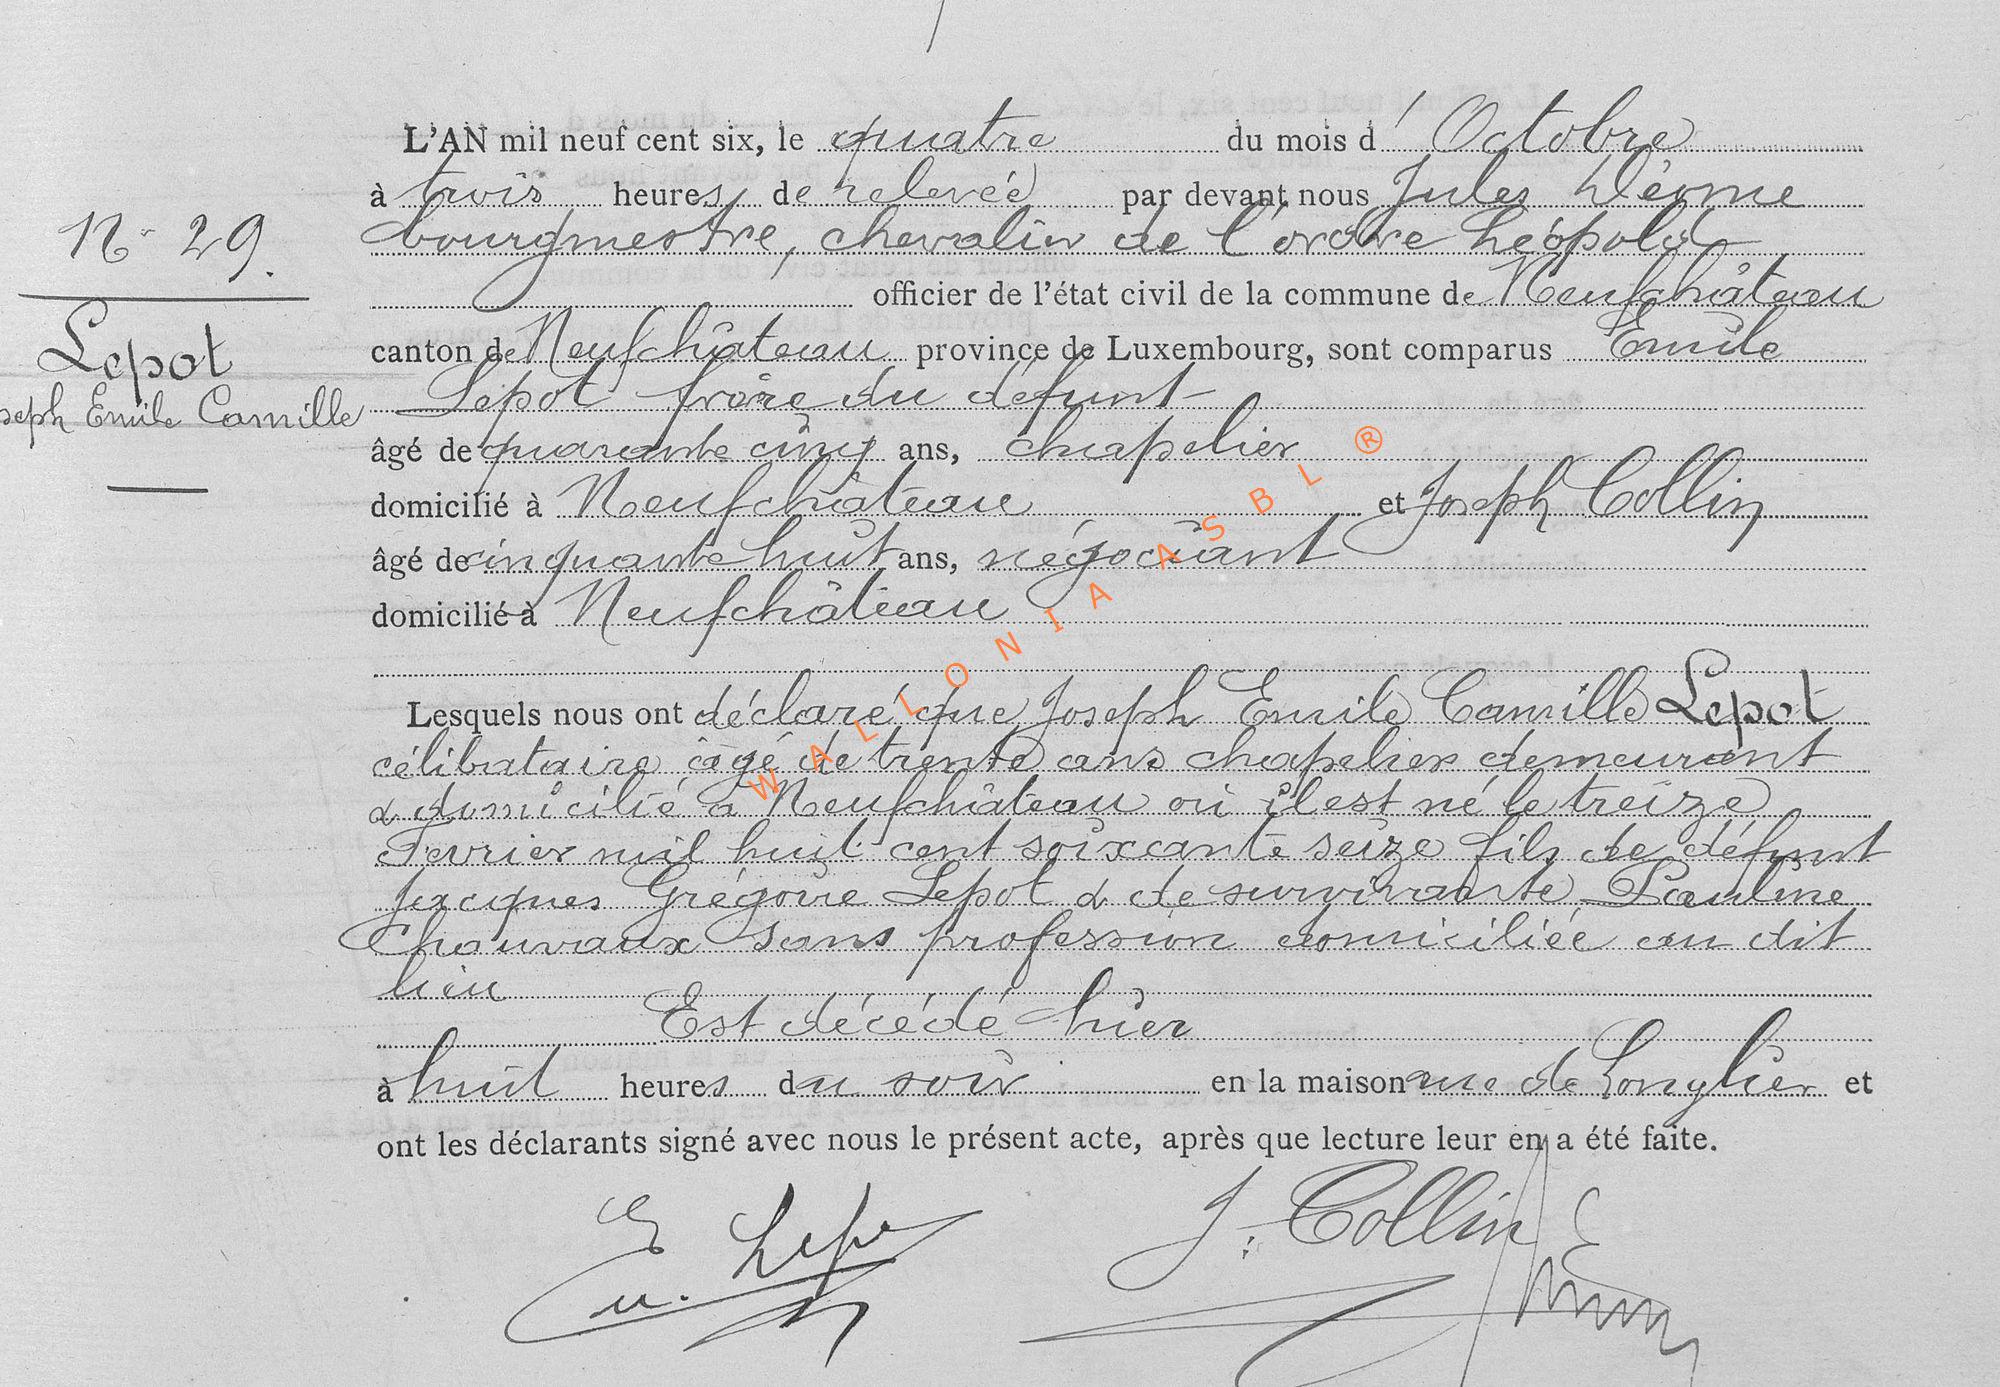 L'AN mil neuf cent six, le quatre du mois d'Octobre
à trois heures de relevée par devant nous Jules
N° 29.
bourgmestre, chevalier de l'ordre Léopold
officier de l'état civil de la commune de Neufchâteau
Lepot
canton de Neufchâteau province de Luxembourg, sont comparus Emile
seph Emile Camille
Lepot frère du défunt
âgé de quarante cinq ans, chapelier
domicilié à Neufchâteau et Joseph Collin
âgé de cinquante huit ans, négociant
domicilié à Neufchâteau
WALLONIA ASBL ®
Lesquels nous ont déclaré que Joseph Emile Camille Lepot
célibataire âgé de trente ans chapelier demeurant
& domicilié à Neufchâteau où il est né le treize
Fevrier mil huit cent soixante seize fils de défunt
Jacques Grégoire Lepot & de survivante Pauline
Chauvaux sans profession domiciliée au dit
lieu
Est décédé hier
à huit heures du soir en la maison rue de Longlier et
ont les déclarants signé avec nous le présent acte, après que lecture leur en a été faite.
E Lepo
J. Collin